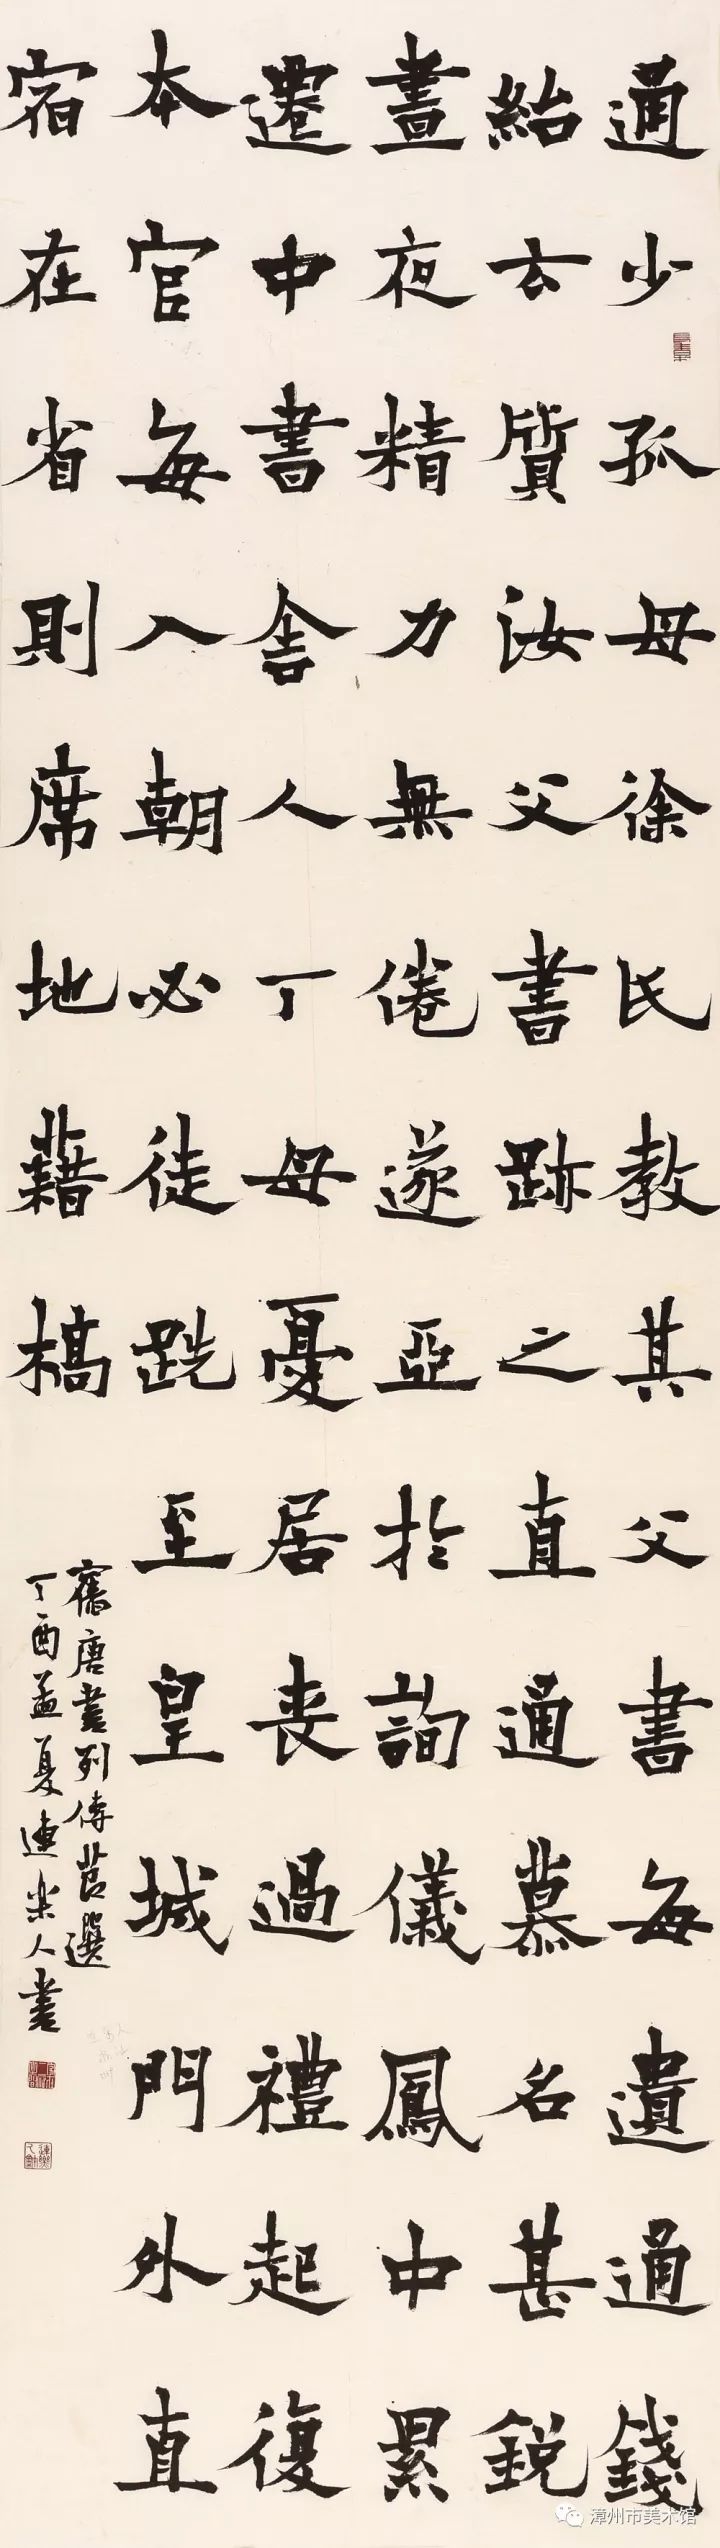 通少孤母徐氏教其父書每遺通錢
紿云質汝父書跡之直通慕名甚銳
晝夜精力無倦遂亞於詢儀鳳中累
遷中書舍人丁母憂居喪過禮起復
本官每入朝必徒跣至皇城門外直
宿在省則席地藉槁
舊唐書列傳節選
丁酉孟夏連樂人書
漳州市美术馆